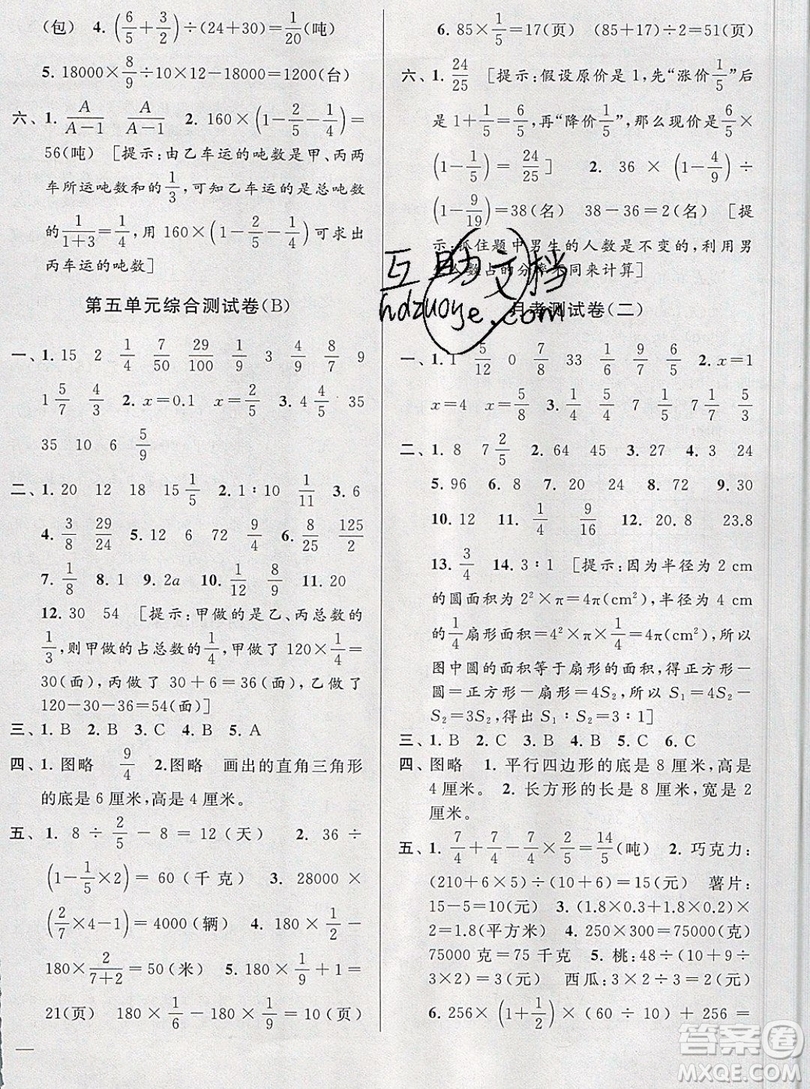 (包) 4. (6/5+3/2)÷(24+30)=1/20(吨)
5. 18000×8/9÷10-18000=1200(台)
六、1. A/A-1 A/A-1 2. 160×(1-2/5-1/4)=
56(吨) [提示:由乙车运的吨数是甲、丙两
车所运吨数和的1/3,可知乙车运的是总吨数
的1/1+3=1/4,用 160×(1-2/5-1/4)可求出
丙两车运的吨数]
第五单元综合测试卷(B)
一、1. 15 2 1/4 7/50 29/100 1/9 3/10 2. 9/8
1 5/7 4/3 2. x=0.1 x=3/5 3. 4 4/5 35
35 10 6 5/9
二、1. 20 12 20 15 1/5 2. 1∶10 1/11 3. 6
4. 3/8 29/24 5. 15 12 9/4 6. 8/25 125/2
7. 1/18 8. 9 9. 2a 10. 1/4 11. 8/9
12. 30 54 [提示:甲做的是乙、丙总数的
1/3,则甲做的占总数的1/4,甲做了 120×1/4=
30(面),丙做了 30+6=36(面),乙做了
120-30-36=54(面)]
三、1. B 2. B 3. B 4. B 5. A
四、1. 图略 9/4 2. 图略 画出的直角三角形
的底是 6 厘米,高是 4 厘米。
五、1. 8÷2/5-8=12(天) 2. 36÷
(1-1/5×2)=60(千克) 3. 28000×
(2/7×4-1)=4000(辆) 4. 180×1/2-
180×2/7+2=50(米) 5. 180×(1/6-1/20)=
21(页) 180×1/6-180×1/9=10(页)
6. 85×1/5=17(页) (85+17)÷2=51(页)
六、1. 24/25 [提示:假设原价是 1,先“涨价1/5”后
是 1+1/5=6/5,再“降价1/5”,那么现价是6/5×
(1-1/5)=24/25] 2. 36×(1-4/9)÷
(1-9/19)=38(名) 38-36=2(名) [提
示:抓住题中男生的人数是不变的,可根据
人数占的分率不同来计算]
互助文档
hdzuoye.com
月考测试卷(二)
一、1. 1 5/12 0 7/8 33 1/6 9/7 6/5 2. x=1
x=4 x=5/8 3. 3/4 1/6 7/5 1/7 1/9 5/6
二、1. 8 7 2/5 2. 64 45 3. 27 4. 3 24
5. 96 8. 60 9. 8
10. 12 11. 1/4 9/16 12. 20 23.8
13. 3/4 14. 3∶1 [提示:因为半径为 2 cm
的圆面积为 2²×π=4π(cm²),半径为 4 cm
的1/4扇形面积=4²×π×1/4=4π(cm²),所以
图中圆的面积等于扇形的面积,得关系:
圆=正方形-扇形=4S₂,所以 S₁=4S₂-
S₂=3S₂,得出 S₁∶S₂=3∶1]
三、1. B 2. B 3. C 4. B 5. B 6. C
四、图略 1. 平行四边形的底是 8 厘米,高是
4 厘米。 2. 长方形的长是 8 厘米,宽是 2
厘米。
五、1. 7/4+7/4-7/4×2/5=14/5(吨) 2. 巧克力:
(210+6×5)÷(5+11)=15(元) 薯片:
15-5=10(元) 3. (1.8×0.3+1.8×0.2)×
2=1.8(平方米) 4. 250×300=75000(克)
75000 克=75 千克 5. 桃:48÷(10+9÷
3×2)=3(元) 西瓜:3×2÷3=2(元)
6. 256×1/2×(60÷10)+256=
答案圈
MXQE.COM